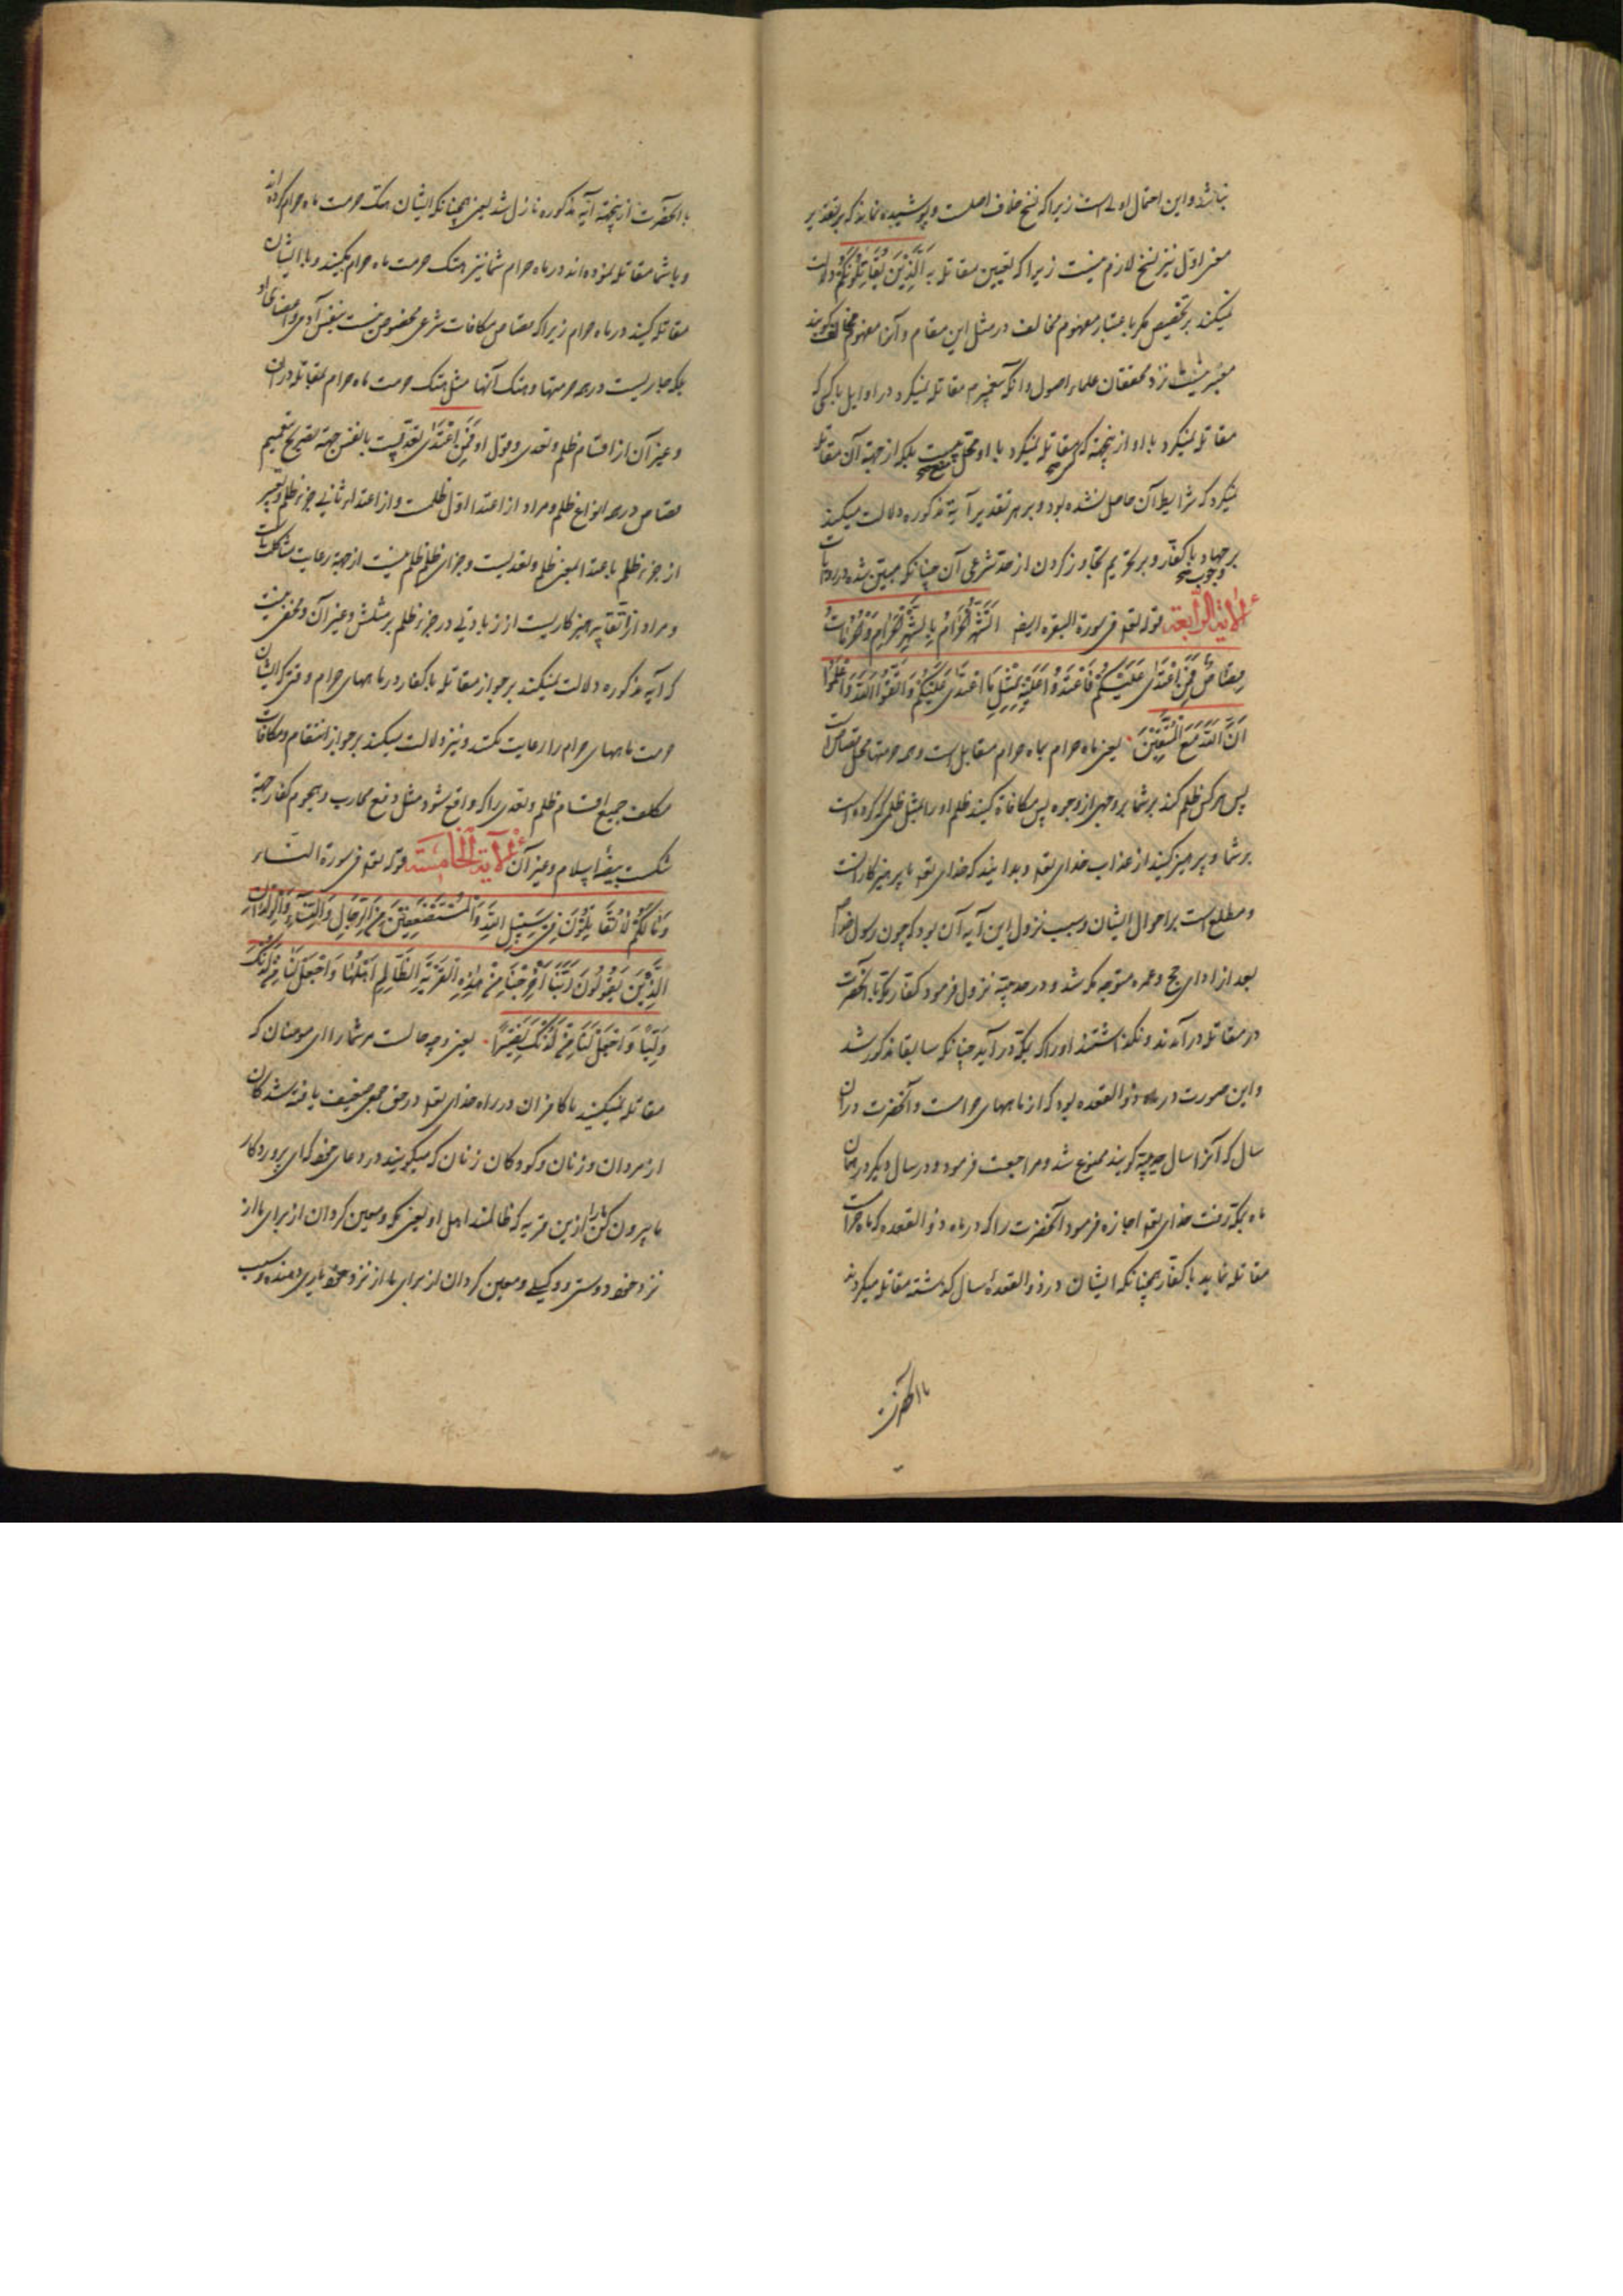 نباشد و این احتمال اولی است زیرا که نسخ خلاف اصلست و پوشیده نماند که بر تقدیر
معنی اول نیز نسخ لازم نیست زیرا که تعیین مقاتله به اَلَّذِینَ یُقَاتِلُونَکُمْ دلالت
نمیکند بر تخصیص مگر باعتبار مفهوم مخالف در مثل این مقام و آن مفهوم مخالف کویند
معتبر نیست نزد محققان علماء اصول و آنکه پیغمبر مقاتله نمیکرد در اوایل با کسی که
مقاتله نمیکرد با او از اینجهة که مقاتله نمیکرد با او محل منع است بلکه از جهة آن مقاتله
نمیکرد که شرایط آن حاصل نشده بود و بر هر تقدیر آیة مذکوره دلالت میکند
بر وجوب جهاد با کفار و بر تحریم تجاوز کردن از حد شرعی آن چنانکه مبین شده در روایات
اَلآیة الرّابعة قوله تعالی فی سورة البقره ایضا اَلشَّهْرُ الْحَرَامُ بِالشَّهْرِ الْحَرَامِ وَالْحُرُمَاتُ
قِصَاصٌ فَمَنِ اعْتَدَی عَلَیْکُمْ فَاعْتَدُوا عَلَیْهِ بِمِثْلِ مَا اعْتَدَی عَلَیْکُمْ وَاتَّقُوا اللّهَ وَاعْلَمُوا
اَنَّ اللّهَ مَعَ الْمُتَّقِینَ یعنی ماه حرام بماه حرام مقابل است و همه حرمتها محل قصاص است
پس هر کس ظلم کند بر شما بر وجهی از وجوه پس مکافاة کنید ظلم او را بمثل ظلمی که کرده است
بر شما و پرهیز کنید از عذاب خدای تعالی و بدانید که خدای تعالی با پرهیزکارانست
و مطلع است بر احوال ایشان و سبب نزول این آیه آن بود که چون رسول خدا
بعد از ادای حج و عمره متوجه مکه شد و در حدیبیه نزول فرمود کفار مکه با آنحضرت
در مقاتله درآمدند و نکذاشتند او را که بمکه درآید چنانکه سابقا مذکور شد
و این صورت در ماه ذو القعده بود که از ماههای حرامست و آنحضرت در آن
سال که آنرا سال حدیبیه کویند ممنوع شد و مراجعت فرمود و در سال دیکر در همان
ماه بمکه رفت خدای تعالی اجازه فرمود آنحضرت را که در ماه ذو القعده که ماه حرامست
مقاتله نماید با کفار همچنانکه ایشان در ذو القعدهٔ سال کذشته مقاتله میکردند
با آنحضرت
با آنحضرت از اینجهة آیه مذکوره نازل شد یعنی همچنانکه ایشان هتک حرمت ماه حرام کرده‌اند
و با شما مقاتله نموده‌اند در ماه حرام شما نیز هتک حرمت ماه حرام بکنید و با ایشان
مقاتله کنید در ماه حرام زیرا که قصاص مکافات شرعی مخصوص نیست بنفس آدمی و اعضای او
بلکه جاریست در همه حرمتها و هتک آنها مثل هتک حرمت ماه حرام بمقاتله در آن
و غیر آن از اقسام ظلم و تعدی و قول او فَمَنِ اعْتَدَی جهة تصریح بتعمیم
قصاص در همه انواع ظلم و مراد از اعتداء اول ظلمست و از اعتداء ثانی جزاء ظلم و تعبیر
از جزاء ظلم باعتداء بمعنی ظلم و تعدیست و جزای ظلم ظلم نیست از جهة رعایت مشاکلت است
و مراد از اتقا پرهیزکاریست از زیادتی در جزاء ظلم بر مثلش و غیر آن و مخفی نیست
که آیه مذکوره دلالت میکند بر جواز مقاتله با کفار در ماههای حرام وقتی که ایشان
حرمت ماههای حرام را رعایت نکنند و نیز دلالت میکند بر جواز انتقام و مکافات
مکلف جمیع اقسام ظلم و تعدی را که واقع شود مثل دفع محارب و هجوم کفار جهة
شکست بیضهٔ اسلام و غیر آن اَلآیة الخامسَة قوله تعالی فی سورة النساء
وَمَالَکُمْ لَاتُقَاتِلُونَ فِی سَبِیلِ اللّهِ وَالْمُسْتَضْعَفِینَ مِنَ الرِّجَالِ وَالنِّسَاءِ وَالْوِلْدَانِ
الَّذِینَ یَقُولُونَ رَبَّنَا اَخْرِجْنَا مِنْ هذِهِ الْقَرْیَةِ الظَّالِمِ اَهْلُهَا وَاجْعَلْ لَنَا مِنْ لَدُنْکَ
وَلِیّاً وَاجْعَلْ لَنَا مِنْ لَدُنْکَ نَصِیراً یعنی و چه حالست مر شما را ای مومنان که
مقاتله نمیکنید با کافران در راه خدای تعالی و در حق جمعی ضعیف یافته شدکان
از مردان و زنان و کودکان زنان که میکویند در دعای خود که ای پروردکار
ما بیرون کن ما را ازین قریه که ظالمند اهل او یعنی مکه و معین کردان از برای ما از
نزد خود دوستی و وکیلی و معین کردان از برای ما از نزد خود یاری دهنده و سبب